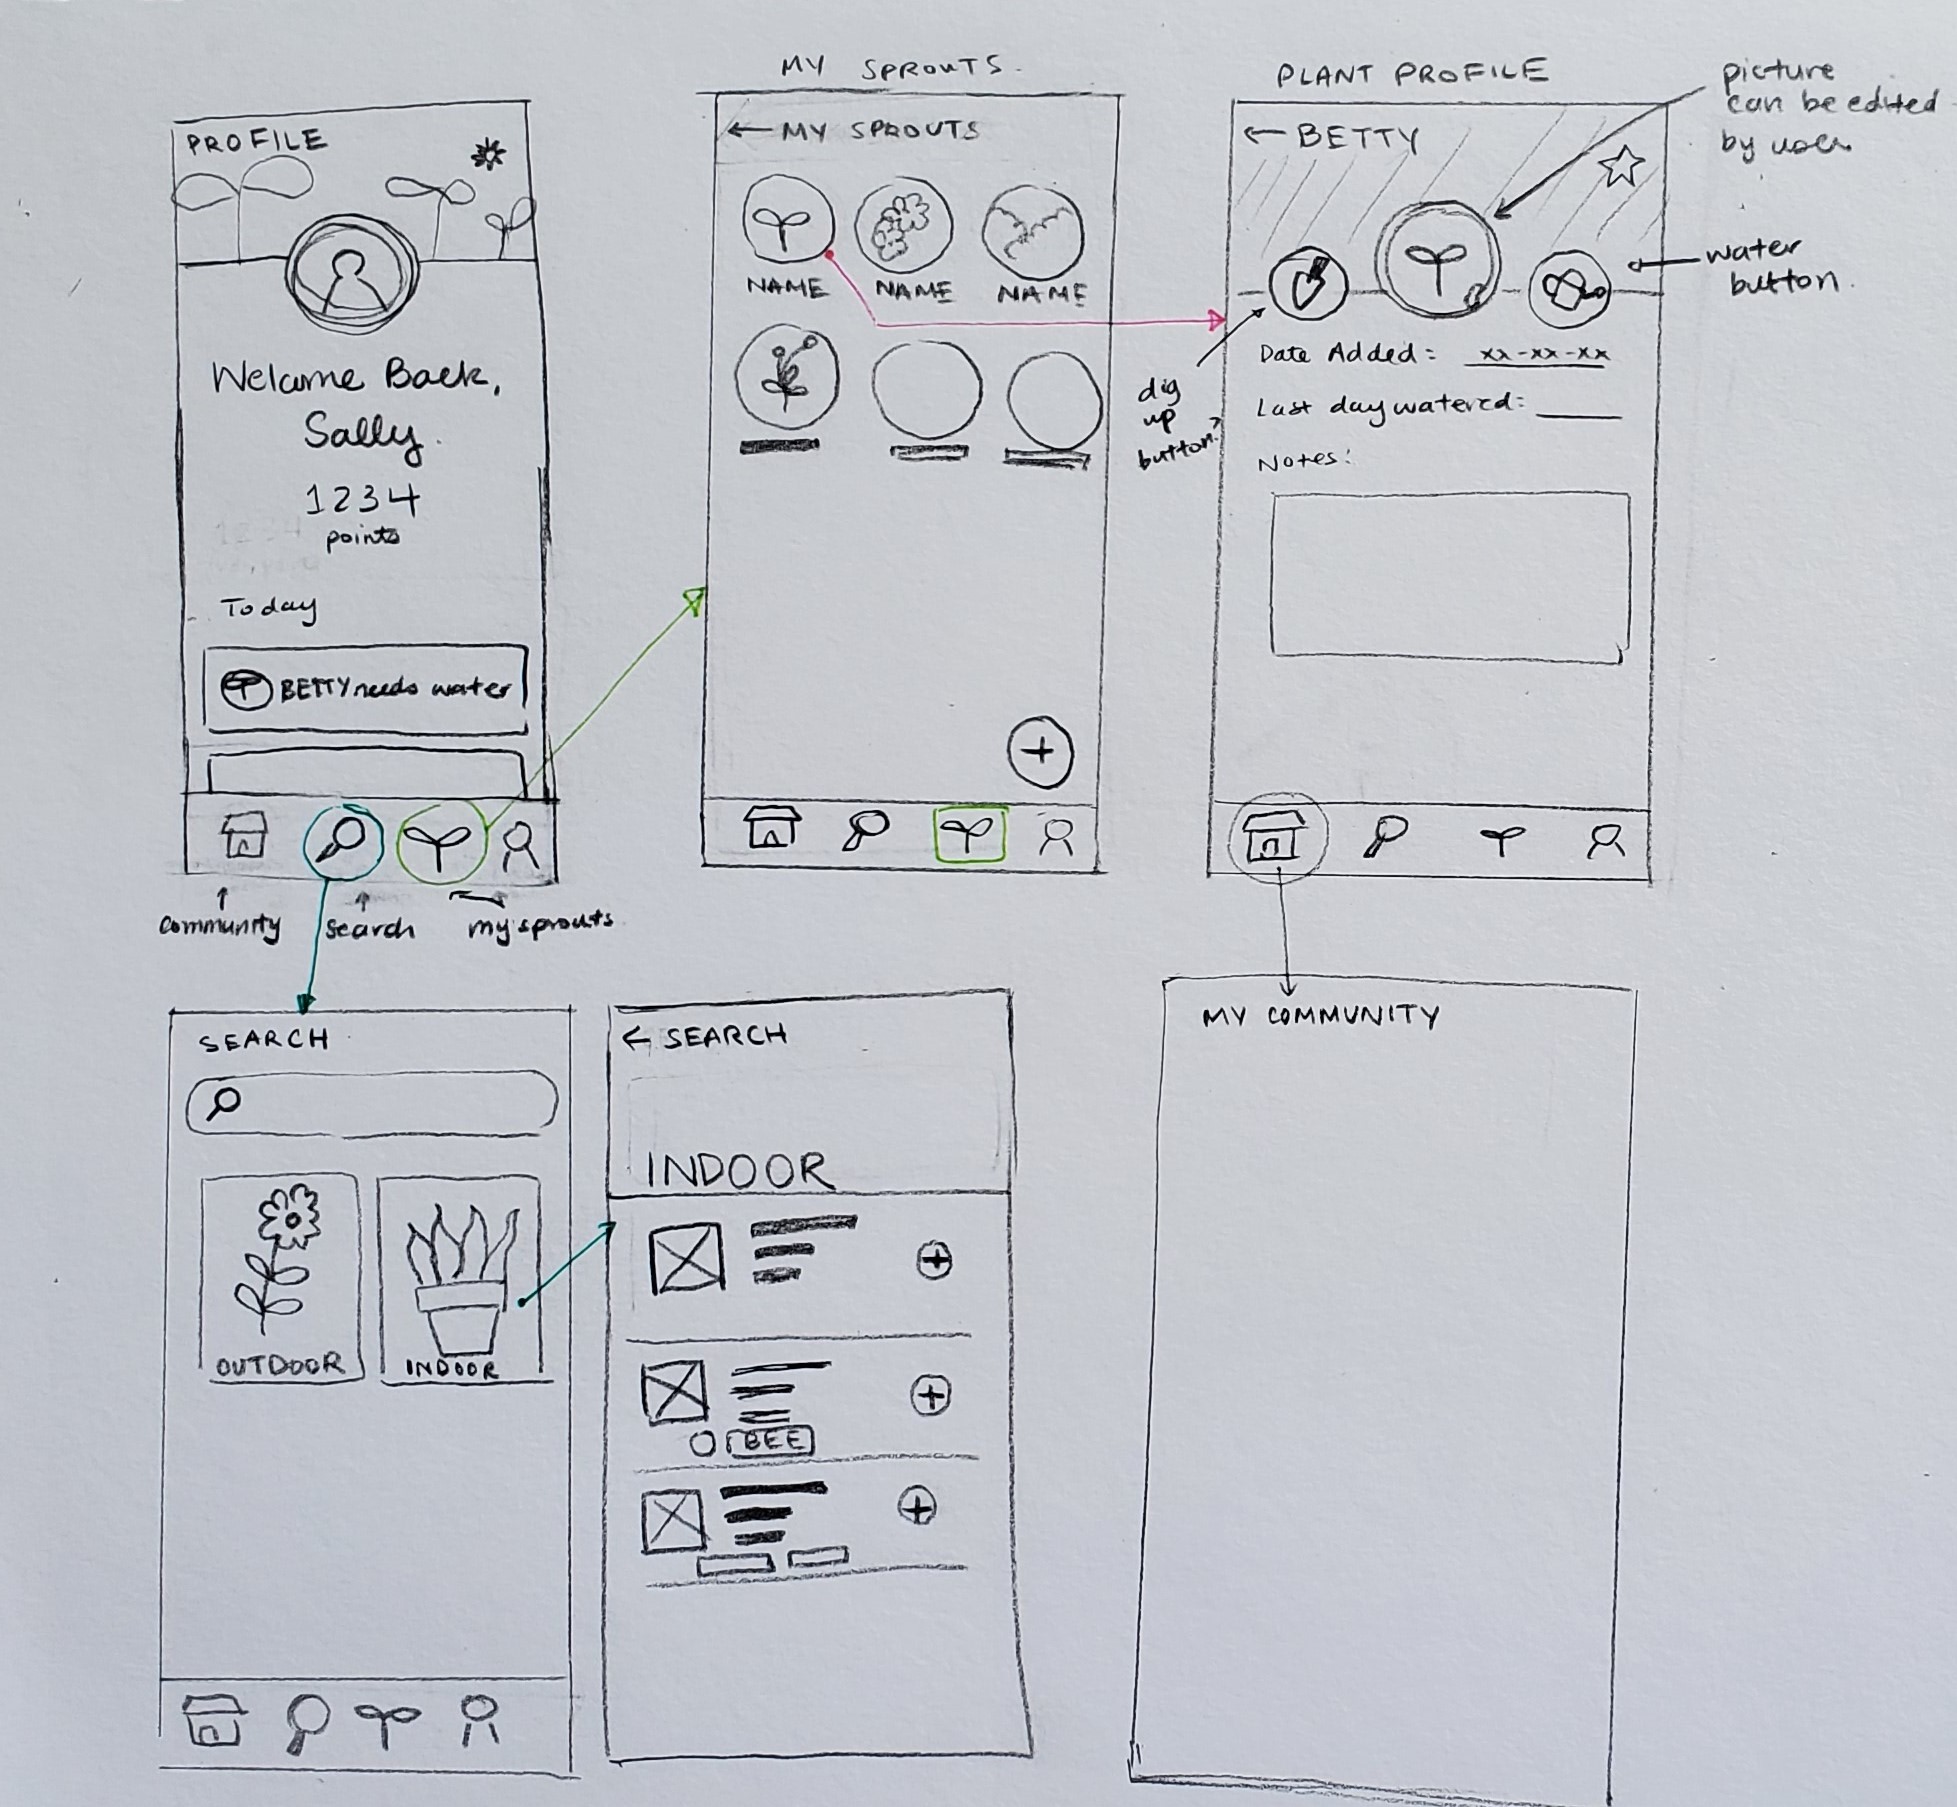 PROFILE
Welcome Back,
Sally.
1234
points
Today
BETTY needs water
community
search
my sprouts
MY SPROUTS.
← MY SPROUTS
NAME
NAME
NAME
PLANT PROFILE
← BETTY
picture
can be edited
by user
water
button.
dig
up
button
Date Added: xx-xx-xx
Last day watered:
Notes:
SEARCH
OUTDOOR
INDOOR
← SEARCH
INDOOR
BEE
MY COMMUNITY